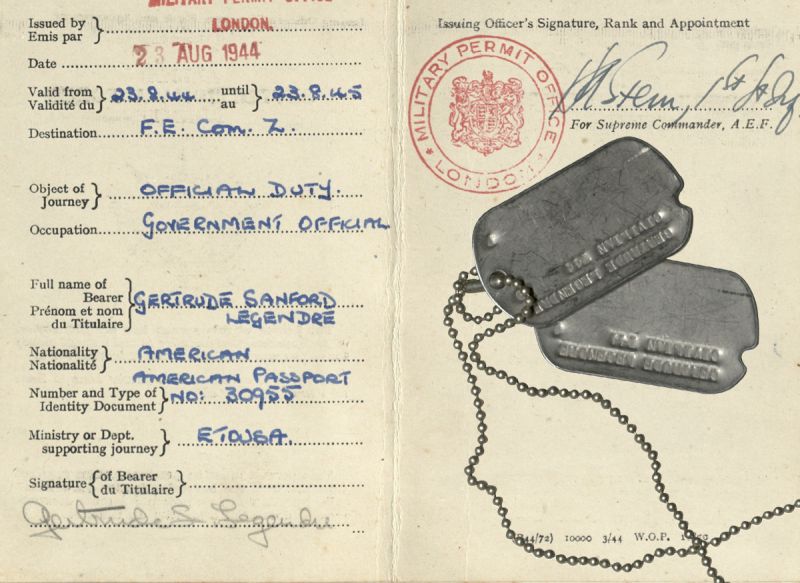 MILITARY PERMIT OFFICE
LONDON.
Issued by
Emis par
Date 23 AUG 1944
Valid from 23.8.44 until 23.8.45
Validité du au
Destination F.E. Com. Z.
Object of
Journey OFFICIAL DUTY.
Occupation GOVERNMENT OFFICIAL
Full name of
Bearer GERTRUDE SANFORD
Prénom et nom LEGENDRE
du Titulaire
Nationality AMERICAN
Nationalité
AMERICAN PASSPORT
Number and Type of
Identity Document NO: 30955
Ministry or Dept.
supporting journey ETOUSA.
Signature of Bearer
du Titulaire
Gertrude S. Legendre
Issuing Officer's Signature, Rank and Appointment
MILITARY PERMIT OFFICE
LONDON
For Supreme Commander, A.E.F.
GERTRUDE LEGENDRE
CIVILIAN
GERTRUDE LEGENDRE
CIVILIAN
10000 3/44 W.O.P.